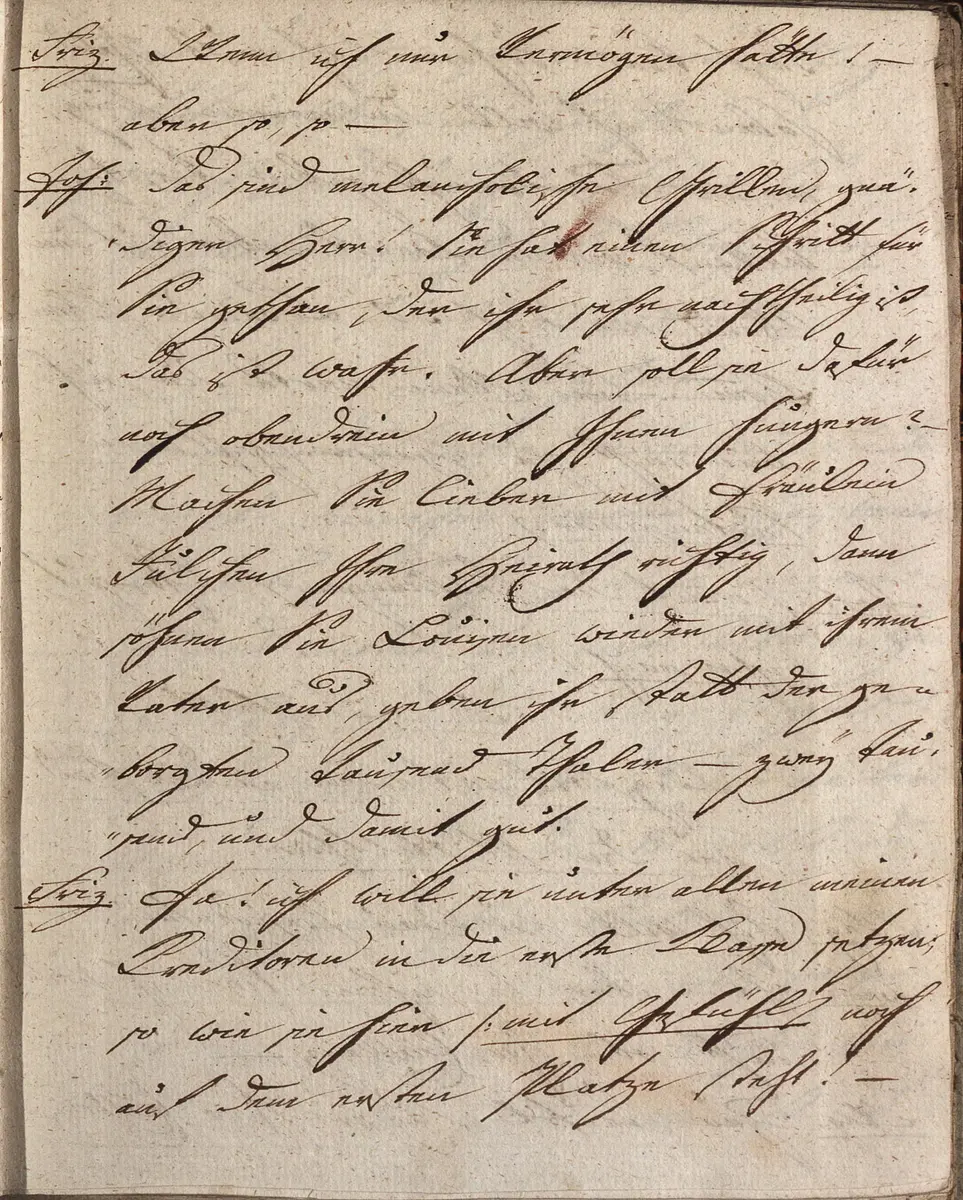 Friz. Wenn ich nur Vermögen hätte! —
aber so, so —
Joh: Das sind melancholische Grillen, gnä-
diger Herr! Sie hat einen Schritt für
Sie gethan, der ihr sehr nachtheilig ist,
das ist wahr. Aber soll sie dafür
noch obendrein mit Ihnen hungern? —
Machen Sie lieber mit Fräulein
Julchen Ihre Heirath richtig, dann
söhnen Sie Louisen wieder mit ihrem
Vater aus, geben ihr statt der ge-
borgten tausend Thaler — zwey tau-
send, und damit gut.
Friz Ja! ich will sie unter allen meinen
Creditoren in die erste Classe setzen;
so wie sie hier /: mit Gefühl :/ noch
auf dem ersten Platze steht! —